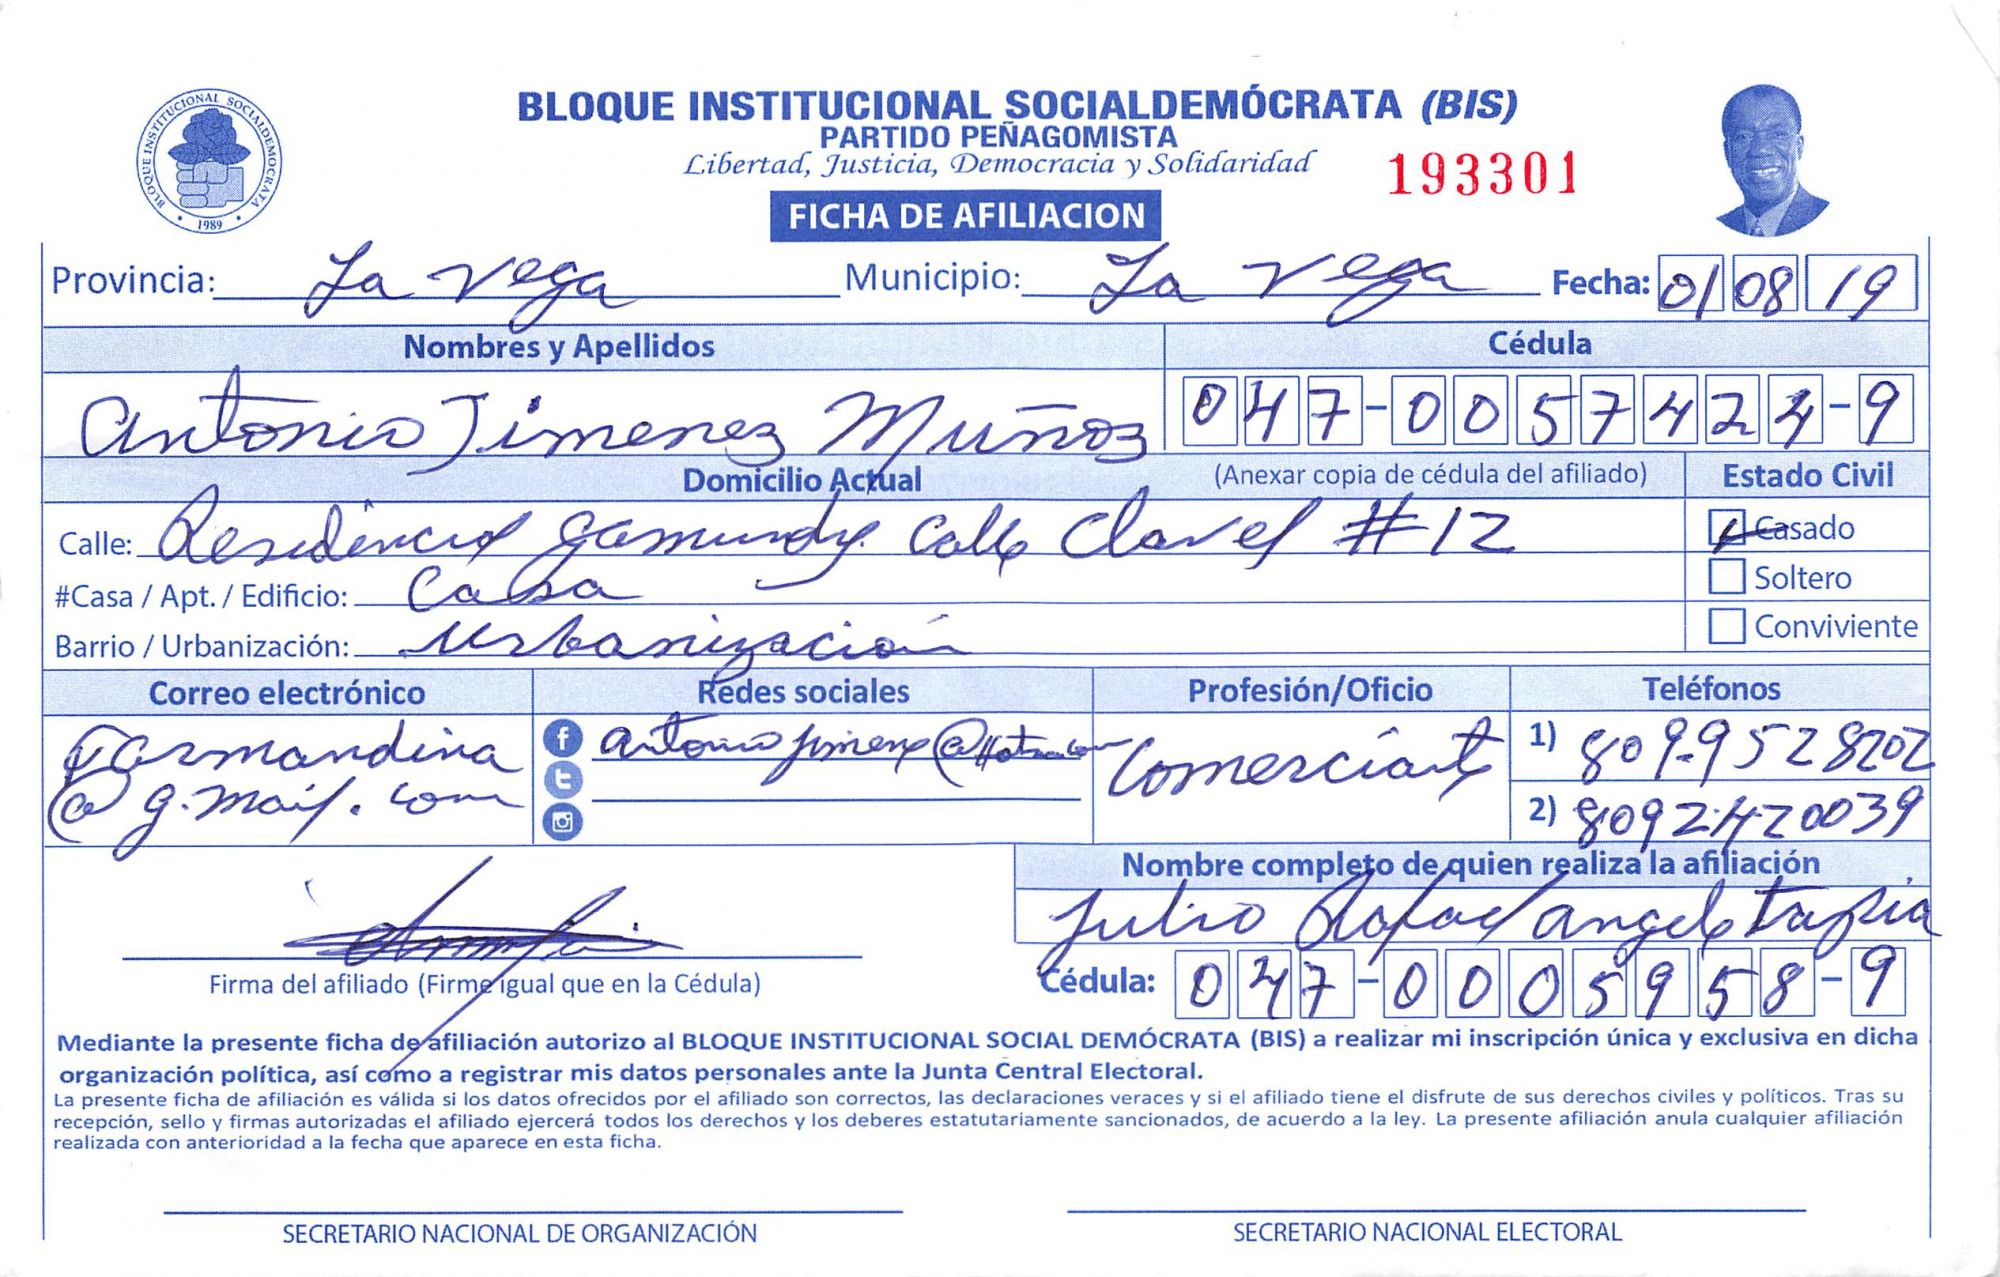 BLOQUE INSTITUCIONAL SOCIALDEMOCRATA
1989
BLOQUE INSTITUCIONAL SOCIALDEMÓCRATA (BIS)
PARTIDO PEÑAGOMISTA
Libertad, Justicia, Democracia y Solidaridad
193301
FICHA DE AFILIACION
Provincia: La Vega Municipio: La Vega Fecha: 01 08 19
Nombres y Apellidos Cédula
Antonio Jimenez Muñoz 047-0057424-9
Domicilio Actual (Anexar copia de cédula del afiliado) Estado Civil
Calle: Residencial Gamundy. Calle Clavel #12 Casado
#Casa / Apt. / Edificio: Casa Soltero
Barrio / Urbanización: Urbanización Conviviente
Correo electrónico Redes sociales Profesión/Oficio Teléfonos
@g.mail.com antonio jimenez@ Comerciante 1) 809-9528202
2) 8092420039
Nombre completo de quien realiza la afiliación
Julio Rafael Angeles Tapia
Firma del afiliado (Firme igual que en la Cédula) Cédula: 047-0005958-9
Mediante la presente ficha de afiliación autorizo al BLOQUE INSTITUCIONAL SOCIAL DEMÓCRATA (BIS) a realizar mi inscripción única y exclusiva en dicha
organización política, así como a registrar mis datos personales ante la Junta Central Electoral.
La presente ficha de afiliación es válida si los datos ofrecidos por el afiliado son correctos, las declaraciones veraces y si el afiliado tiene el disfrute de sus derechos civiles y políticos. Tras su
recepción, sello y firmas autorizadas el afiliado ejercerá todos los derechos y los deberes estatutariamente sancionados, de acuerdo a la ley. La presente afiliación anula cualquier afiliación
realizada con anterioridad a la fecha que aparece en esta ficha.
SECRETARIO NACIONAL DE ORGANIZACIÓN SECRETARIO NACIONAL ELECTORAL